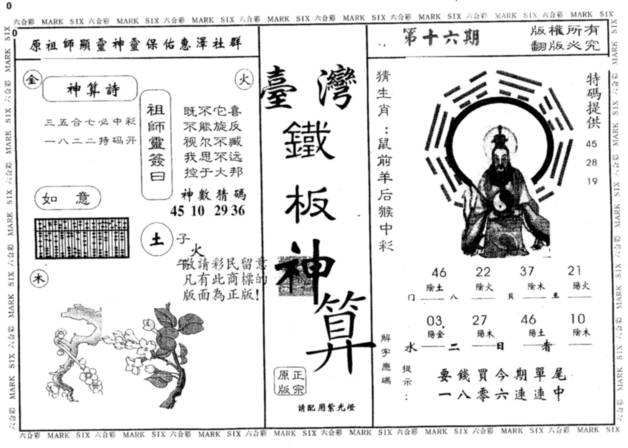 0
六合彩 MARK SIX 六合彩 MARK SIX 六合彩 MARK SIX 六合彩 MARK SIX 六合彩 MARK SIX 六合彩 MARK SIX 六合彩 MARK SIX 六合彩
原祖師顯靈神靈保佑惠澤社群
金
火
神算詩
三五合七必中彩
一八二二持码开
祖師靈簽曰
既不它喜
不能旋反
视尔不臧
我思不远
控于大邦
神數猜碼
45 10 29 36
如意
土
子
火
午
敬請彩民留意
凡有此商標的
版面為正版!
木
臺灣
鐵板神算
正宗
原版
請配用紫光燈
第十六期
版權所有
翻版必究
猜生肖：鼠前羊后猴中彩
特码提供
45
28
19
46 22 37 21
陰土 陰火 陰木 陽火
門 八 貝 主
03 27 46 10
陽金 陽木 陽土 陰木
水 二 日 看
解字應碼
提示：
要錢買今期單尾
一八零六連連中
六合彩 MARK SIX 六合彩 MARK SIX 六合彩 MARK SIX 六合彩 MARK SIX 六合彩 MARK SIX 六合彩 MARK SIX 六合彩 MARK SIX 六合彩